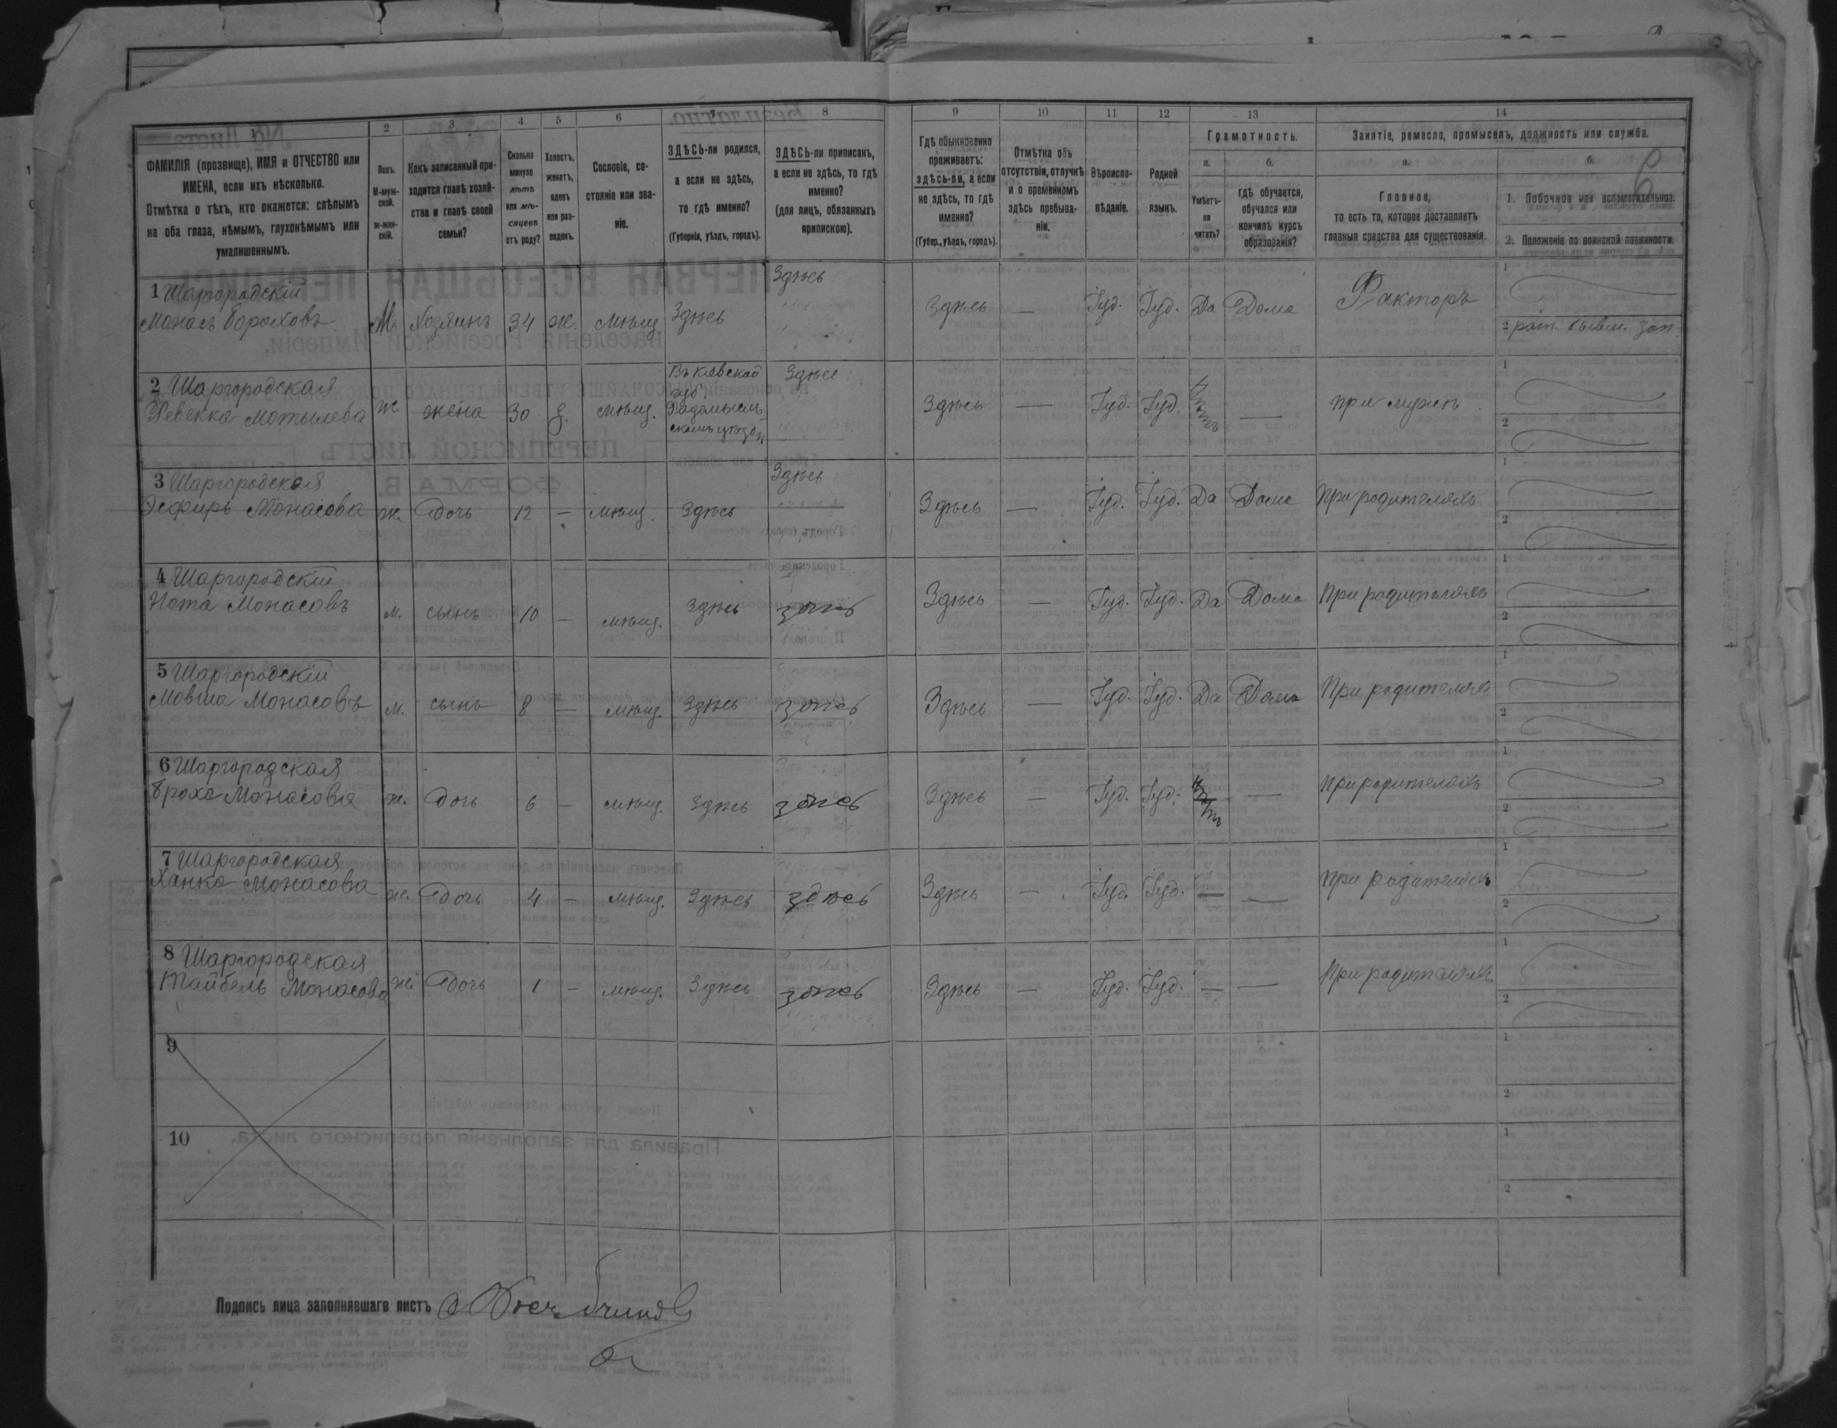 1
2
3
4
5
6
7
8
ФАМИЛІЯ (прозвище), ИМЯ и ОТЧЕСТВО или
ИМЕНА, если ихъ нѣсколько.
Отмѣтка о тѣхъ, кто окажется: слѣпымъ
на оба глаза, нѣмымъ, глухонѣмымъ или
умалишеннымъ.
Полъ.
М-муж-
ской.
ж-жен-
скій.
Какъ записанный при-
ходится главѣ хозяй-
ства и главѣ своей
семьи?
Сколько
минуло
лѣтъ
или мѣ-
сяцевъ
отъ роду?
Холостъ,
женатъ,
вдовъ
или раз-
веденъ.
Сословіе, со-
стояніе или зва-
ніе.
ЗДѢСЬ-ли родился,
а если не здѣсь,
то гдѣ именно?
(Губернія, уѣздъ, городъ).
ЗДѢСЬ-ли приписанъ,
а если не здѣсь, то гдѣ
именно?
(для лицъ, обязанныхъ
припискою).
9
10
11
12
13
14
Гдѣ обыкновенно
проживаетъ:
здѣсь-ли, а если
не здѣсь, то гдѣ
именно?
(Губер., уѣздъ, городъ).
Отмѣтка объ
отсутствіи, отлучкѣ
и о временномъ
здѣсь пребыва-
ніи.
Вѣроиспо-
вѣданіе.
Родной
языкъ.
Грамотность.
а.
Умѣетъ-
ли
читать?
б.
гдѣ обучается,
обучался или
кончилъ курсъ
образованія?
Занятіе, ремесло, промыселъ, должность или служба.
а.
Главное,
то есть то, которое доставляетъ
главныя средства для существованія.
б.
6
1. Побочное или вспомогательное.
2. Положеніе по воинской повинности.
1 Шаргородскій
Монась Бороховъ М. Хозяинъ 34 ж. мѣщ. Здѣсь Здѣсь Здѣсь — Іуд. Іуд. Да Дома Факторъ 1
2
2 Шаргородская
Ревекка Мотылева ж. жена 30 з. мѣщ. Въ Кіевской
губ.
Радомысль-
скомъ уѣздѣ
Здѣсь Здѣсь — Іуд. Іуд. Нѣтъ — при мужѣ 1
2
3 Шаргородская
Эсфирь Монасова ж. Дочь 12 — мѣщ. Здѣсь Здѣсь Здѣсь — Іуд. Іуд. Да Дома При родителяхъ 1
2
4 Шаргородскій
Нота Монасовъ м. сынъ 10 — мѣщ. Здѣсь здѣсь Здѣсь — Іуд. Іуд. Да Дома При родителяхъ 1
2
5 Шаргородскій
Мовша Монасовъ м. сынъ 8 — мѣщ. Здѣсь здѣсь Здѣсь — Іуд. Іуд. Да Дома При родителяхъ 1
2
6 Шаргородская
Броха Монасова ж. Дочь 6 — мѣщ. Здѣсь здѣсь Здѣсь — Іуд. Іуд. Нѣтъ — При родителяхъ 1
2
7 Шаргородская
Ханка Монасова ж. Дочь 4 — мѣщ. Здѣсь здѣсь Здѣсь — Іуд. Іуд. — — При родителяхъ 1
2
8 Шаргородская
Тайбель Монасова ж. Дочь 1 — мѣщ. Здѣсь здѣсь Здѣсь — Іуд. Іуд. — — При родителяхъ 1
2
9 1
2
10 1
2
Подпись лица заполнявшаго листъ